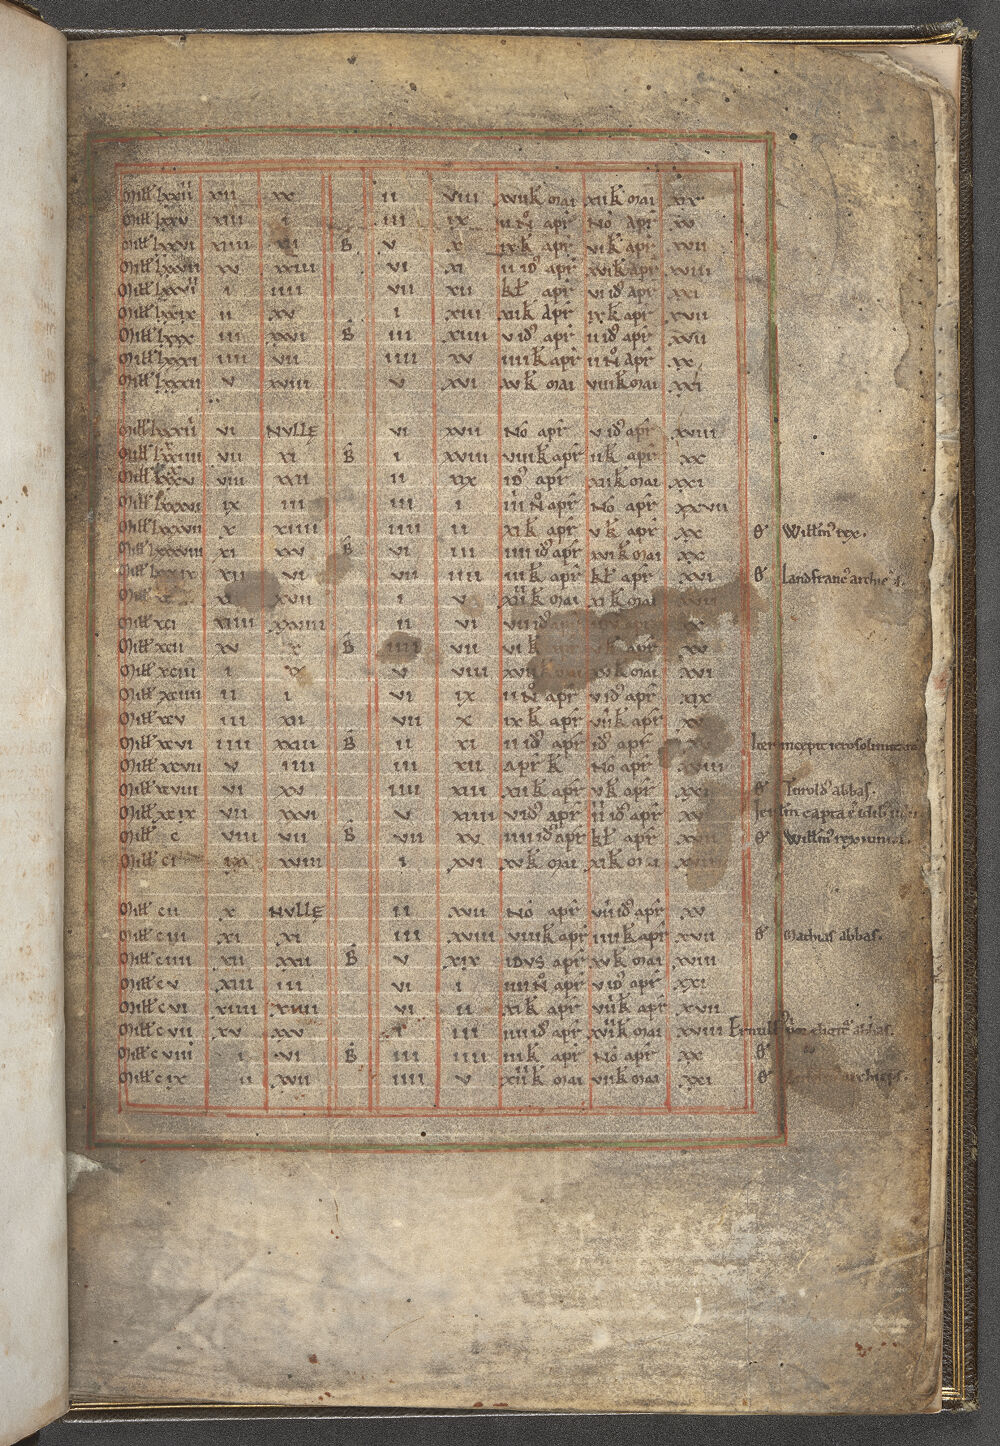 Mill lxxiiii xii xx ii viii xviik mai xiik mai xix
Mill lxxv xiii i iii ix ii N apr No apr xv
Mill lxxvi xiiii xii B v x ixk apr vi k apr xvii
Mill lxxvii xv xxiii vi xi ii id apr xvik apr xviii
Mill lxxviii i iiii vii xii kl apr vi id apr xxi
Mill lxxix ii xv i xiii xiik apr ixk apr xvii
Mill lxxx iii xxvi B iii xiiii v id apr ii id apr xvii
Mill lxxxi iiii vii iiii xv iiiik apr ii N apr xx
Mill lxxxii v xviii v xvi xvk mai viiik mai xxi
Mill lxxxiii vi NVLLE vi xvii No apr v id apr xviii
Mill lxxxiiii vii xi B i xviii viiik apr iik apr xx
Mill lxxxv viii xxii ii xix id apr xiik mai xxi
Mill lxxxvi ix iii iii i iiii N apr No apr xxvii
Mill lxxxvii x xiiii iiii ii xik apr v k apr xx & Willm rex.
Mill lxxxviii xi xxv B vi iii iiii id apr xvik mai xx
Mill lxxxix xii vi vii iiii iiik apr kl apr xvi & landfranc archie
Mill xc xvii i v xiiik mai xik mai
Mill xci xiiii xxviii ii vi
Mill xcii xv x B iiii vii vi k k apr xv
Mill xciii i ix v viii xvk mai xvi
Mill xciiii ii i vi ix ii N apr v id apr xix
Mill xcv iii xii vii x ixk apr viik apr xv
Mill xcvi iiii xxiii B ii xi ii id apr id apr Iter incepit
Mill xcvii v iiii iii xii apr k No apr xviii
Mill xcviii vi xv iiii xiii xiik apr v k apr xxi & Turold abbas.
Mill xcix vii xxvi v xiiii v id apr iii id apr xv Ierlm capta e idib
Mill c viii vii B vii xv iiii id apr kl apr & Willm rex iunior.
Mill ci ix xviii i xvi xvk mai xik mai xviii
Mill cii x NVLLE ii xvii No apr viii id apr xv
Mill ciii xi xi iii xviii viiiik apr iiiik apr xvii & Mathias abbas.
Mill ciiii xii xxii B v xix idvs apr xvk mai xviii
Mill cv xiii iii vi i iiii N apr v id apr xxi
Mill cvi xiiii xiiii vi ii xik apr viiik apr xvii
Mill cvii xv xxv i iii iiii id apr xviik mai xviii Ernulf abbas.
Mill cviii i vi B iii iiii iiik apr No apr xx &
Mill cix ii xvii iiii v xiiik mai viik mai xxi & archieps.